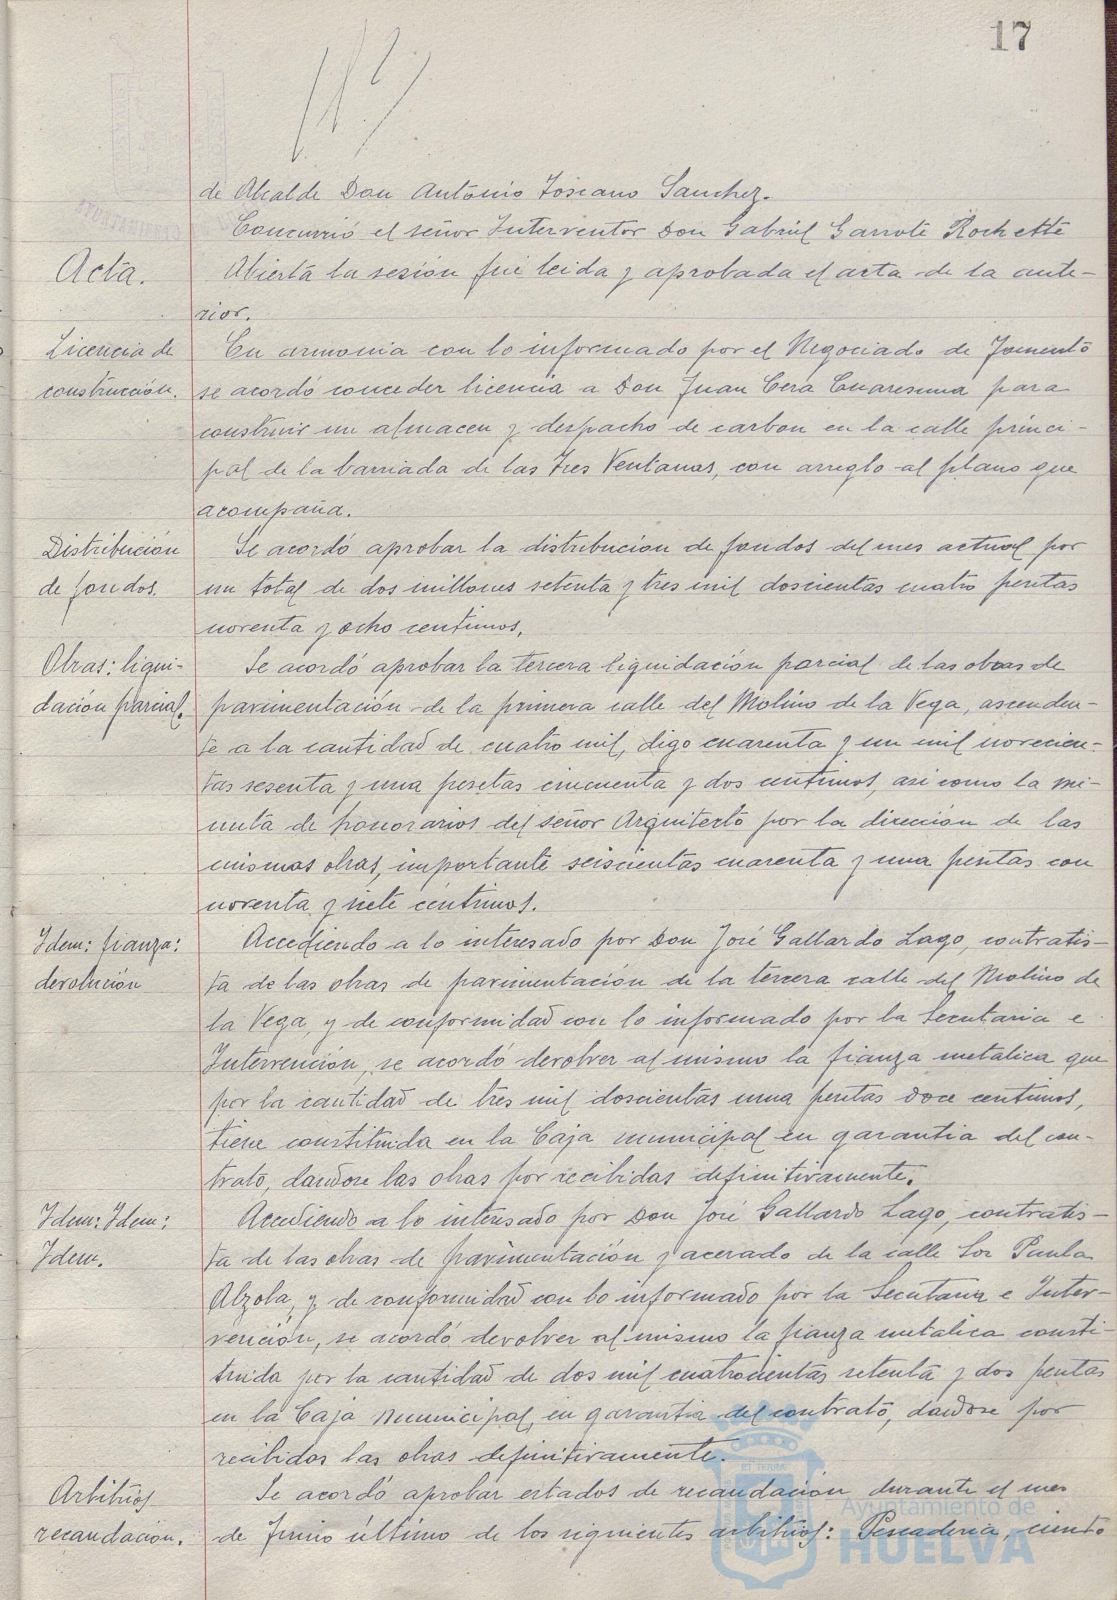 17
de Alcalde Don Antonio Toscano Sanchez.
Concurrió el señor Interventor Don Gabriel Garrote Rochette
Acta.
Abierta la sesión fué leida y aprobada el acta de la ante-
rior.
Licencia de
construcción.
En armonia con lo informado por el Negociado de Fomento
se acordó conceder licencia a Don Juan Cera Cuaresma para
construir un almacen y despacho de carbon en la calle princi-
pal de la barriada de las Tres Ventanas, con arreglo al plano que
acompaña.
Distribución
de fondos.
Se acordó aprobar la distribución de fondos del mes actual por
un total de dos millones setenta y tres mil doscientas cuatro pesetas
noventa y ocho centimos.
Obras: liqui-
dación parcial.
Se acordó aprobar la tercera liquidación parcial de las obras de
pavimentación de la primera calle del Molino de la Vega, ascenden-
te a la cantidad de cuatro mil, digo cuarenta y un mil novecien-
tas sesenta y una pesetas cincuenta y dos centimos, asi como la mi-
nuta de honorarios del señor Arquitecto por la dirección de las
mismas obras, importante seiscientas cuarenta y una pesetas con
noventa y siete céntimos.
Idem: fianza:
devolución
Accediendo a lo interesado por Don José Gallardo Lago, contratis-
ta de las obras de pavimentación de la tercera calle del Molino de
la Vega, y de conformidad con lo informado por la Secretaria e
Intervención, se acordó devolver al mismo la fianza metalica que
por la cantidad de tres mil doscientas una pesetas doce centimos,
tiene constituida en la Caja municipal en garantia del con-
trato, dandose las obras por recibidas definitivamente.
Idem: Idem:
Idem.
Accediendo a lo interesado por Don José Gallardo Lago, contratis-
ta de las obras de pavimentación y acerado de la calle Sor Paula
Alzola, y de conformidad con lo informado por la Secretaria e Inter-
vención, se acordó devolver al mismo la fianza metalica consti-
tuida por la cantidad de dos mil cuatrocientas setenta y dos pesetas
en la Caja Municipal, en garantia del contrato, dandose por
recibidas las obras definitivamente.
Arbitrios
recaudación.
Se acordó aprobar estados de recaudación durante el mes
de Junio último de los siguientes arbitrios: Pescaderia, ciento
Ayuntamiento de
HUELVA